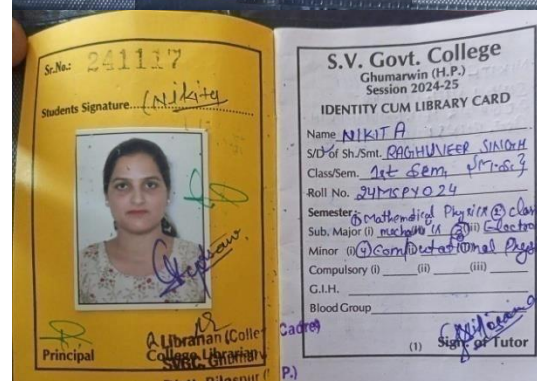 Sr.No.: 241117
Students Signature....(Nikita
Principal
Librarian (College Cadre)
College Librarian
SVGC, Ghumarwin
Distt. Bilaspur (H.P.)
S.V. Govt. College
Ghumarwin (H.P.)
Session 2024-25
IDENTITY CUM LIBRARY CARD
Name NIKITA
S/D of Sh./Smt. RAGHUVEER SINGH
Class/Sem. 1st Sem, M.Sc.
Roll No. 24MSPY024
Semester: ① Mathematical Physics ② class
Sub. Major (i) mechanics ③ (ii) Electro
Minor (i) ④ Computational Phys
Compulsory (i) (ii) (iii)
G.I.H.
Blood Group
(1) Sign. of Tutor